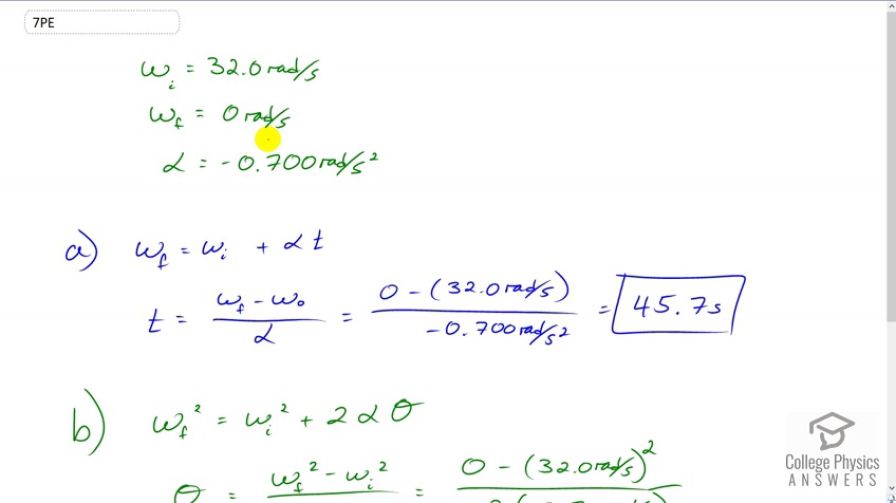 7PE
ωi = 32.0 rad/s
ωf = 0 rad/s
α = -0.700 rad/s²
a) ωf = ωi + αt
t = (ωf - ω₀)/α = (0 - (32.0 rad/s))/(-0.700 rad/s²) = 45.7s
b) ωf² = ωi² + 2αθ
θ = ωf² - ωi² = 0 - (32.0 rad/s)²
College Physics
ANSWERS